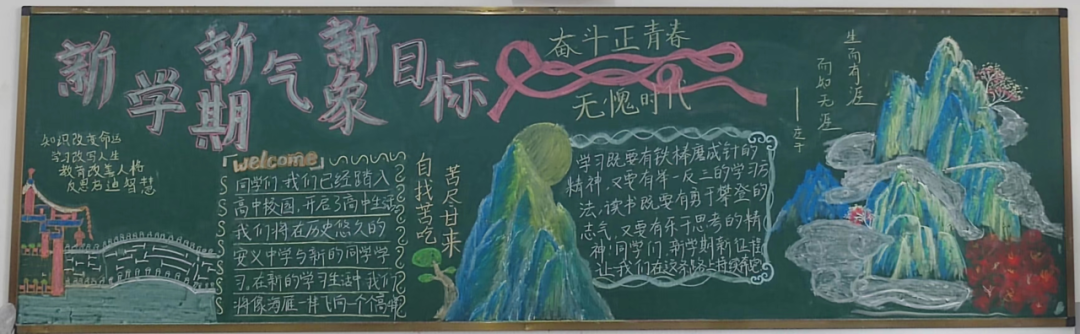 新学期新气象新目标
奋斗正青春
无愧时代
生而有涯
而知无涯
——庄子
知识改变命运
学习改写人生
教育改善人格
反思启迪智慧
welcome
同学们,我们已经踏入
高中校园,开启了高中生活
我们将在历史悠久的
安义中学与新的同学学
习,在新的学习生活中,我们
将像海雁一样飞向一个个高峰
自找苦吃
苦尽甘来
学习既要有铁棒磨成针的
精神,又要有举一反三的学习方
法,读书既要有勇于攀登的
志气,又要有乐于思考的精
神!同学们,新学期新征程
让我们在这条路上持续奋